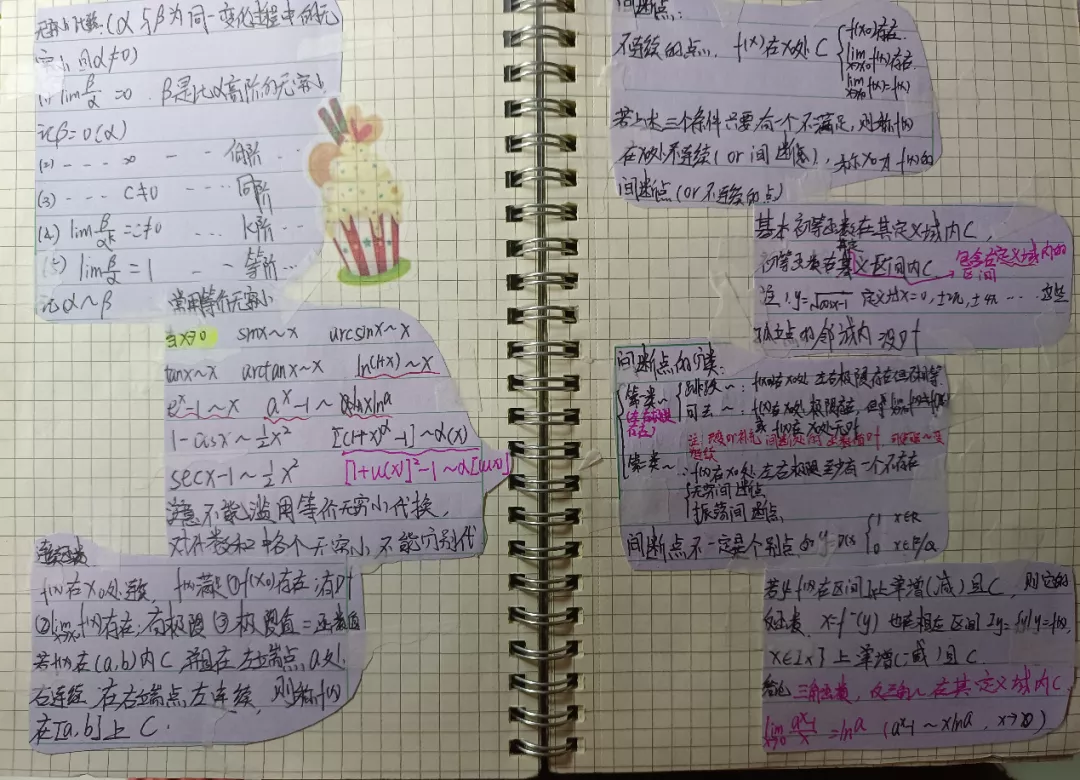 无穷小比较:(α与β为同一变化过程中的无
穷小且α≠0)
(1) lim β/α =0 . β是比α高阶的无穷小
记β=0(α)
(2) - - - - ∞ - - 低阶 - -
(3) - - - - C≠0 - - - - 同阶
(4) lim β/αᵏ =C≠0 ... k阶 - -
(5) lim β/α = 1 - - 等阶...
记 α~β 常用等价无穷小
当x→0 sinx~x arcsinx~x
tanx~x arctanx~x ln(1+x)~x
eˣ-1~x aˣ-1~xlna
1-cosx~½x² [(1+x)^α-1]~α(x)
secx-1~½x² [1+u(x)]²-1~α[u(x)]
注意 不能滥用等价无穷小代换,
对于代数和中各个无穷小,不能分别代
f(x)在x₀处连续, f(x)满足①f(x₀)存在;有df
②lim x→x₀ f(x)存在;有极限③极限值=函数值
若f(x)在(a,b)内C 并且在左端点a处
右连续,在右端点左连续,则称f(x)
在[a,b]上C.
间断点:
不连续的点, f(x)在x₀处C { f(x₀)存在.
lim x→x₀ f(x)存在.
lim x→x₀ f(x)=f(x)
若上述三个条件只要有一个不满足,则称f(x)
在x₀处不连续(or间断), 称x₀为f(x)的
间断点(or不连续的点)
基本初等函数在其定义域内C,
初等函数在其定义区间内C → 包含在定义域内的
区间
注1.y=√cosx-1 定义域x=0,±2π,±4π ... 这些
孤立点的邻域内没df
间断点的分类:
第一类~ (左右极限存在) 跳跃~: f(x)在x₀处左右极限存在但不相等.
可去~: f(x)在x₀处极限存在,但
或f(x)在x₀处无df
第二类~: f(x)在x₀处左右极限至少有一个不存在
无穷间断点
振荡间断点
间断点不一定是个别点 { 1 x∈R
0 x∈
f(x)在区间Ix上单增(减)且C,则它的
反函数 x=f⁻¹(y) 也在相应区间Iy={y|y=f(x),
x∈Ix}上单增(减)且C.
三角函数,反三角~在其定义域内C
lim x→0 aˣ-1/x =lna (aˣ-1~xlna, x→0)